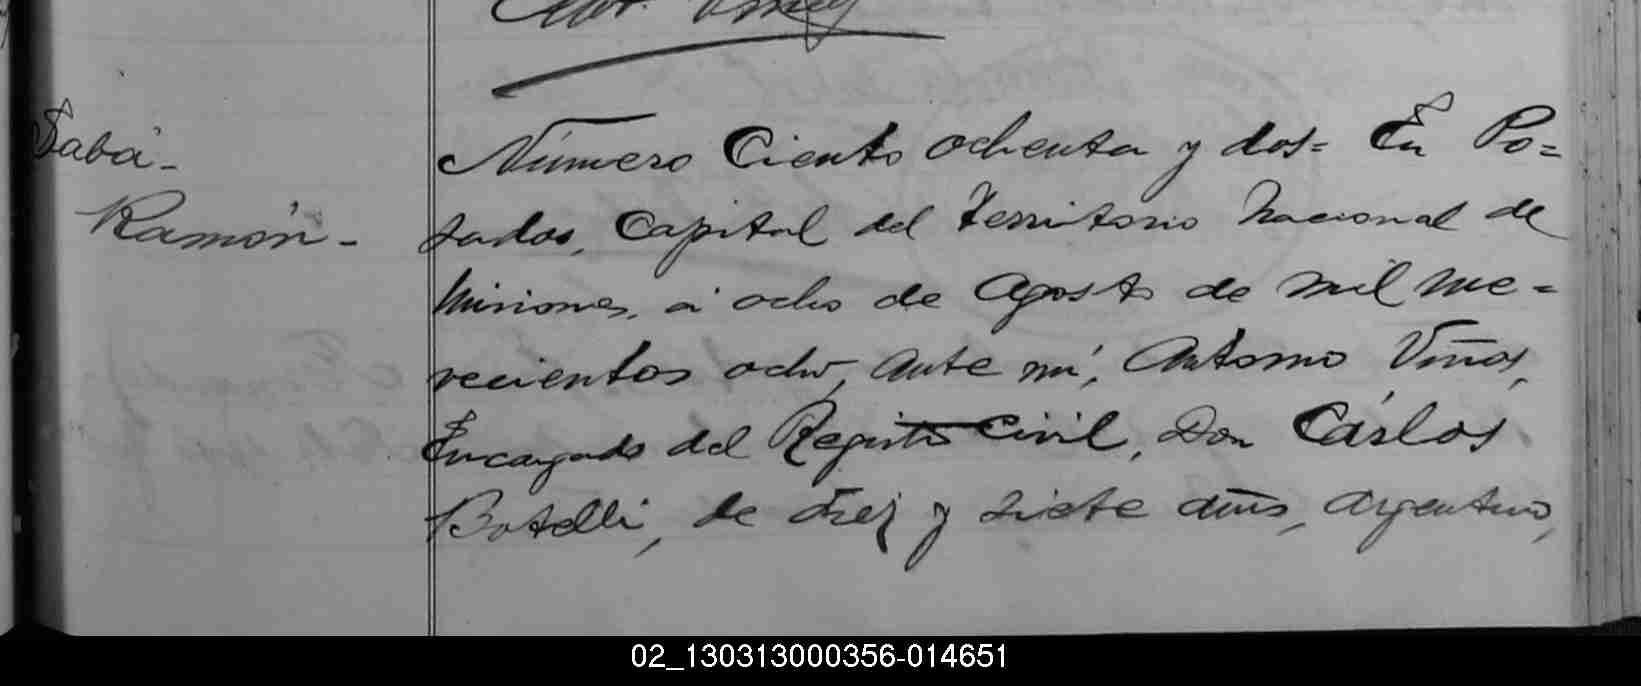 Sabá-
Ramón-
Número Ciento ochenta y dos= En Po=
sadas, Capital del Territorio Nacional de
Misiones, á ocho de Agosto de mil nue=
vecientos ocho, ante mí, Antonio Viñas,
Encargado del Registro Civil, Don Cárlos
Botelli, de diez y siete años, argentino,
02_130313000356-014651